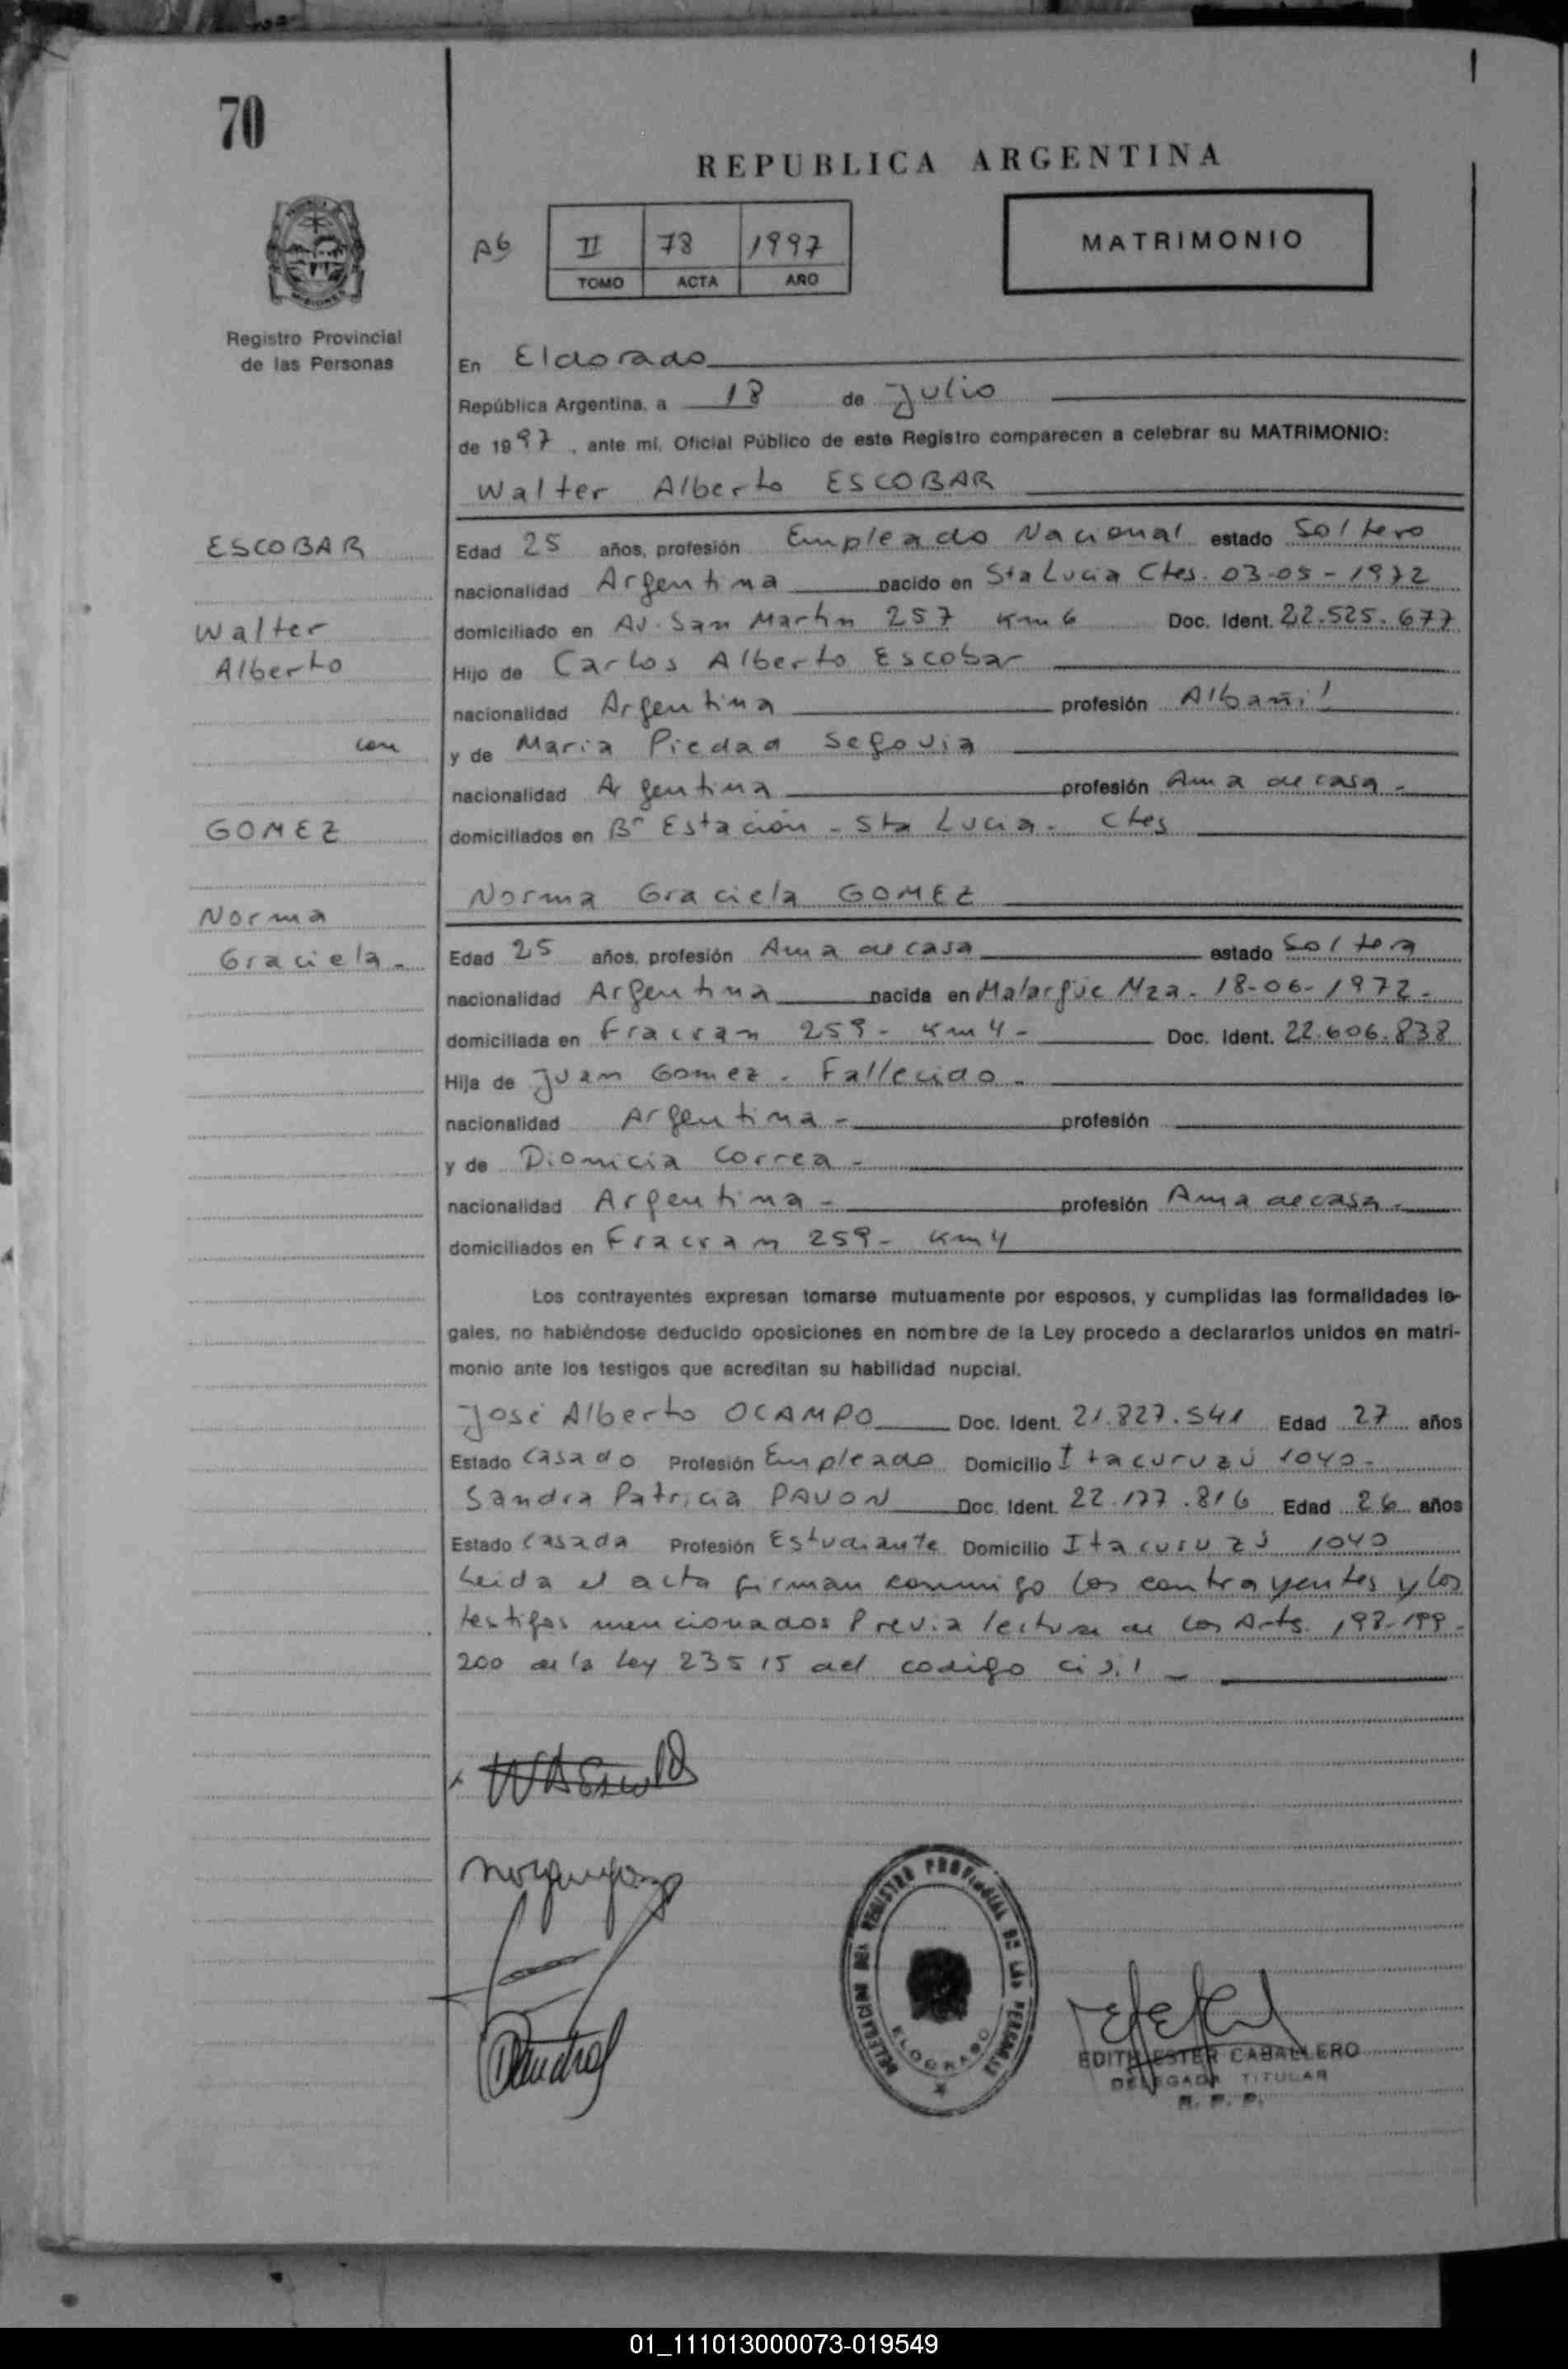 70
REPUBLICA ARGENTINA
A6
II 78 1997
TOMO ACTA AÑO
MATRIMONIO
Registro Provincial
de las Personas
En Eldorado
República Argentina, a 18 de Julio
de 1997, ante mi, Oficial Público de este Registro comparecen a celebrar su MATRIMONIO:
Walter Alberto ESCOBAR
ESCOBAR
Walter
Alberto
con
GOMEZ
Norma
Graciela -
Edad 25 años, profesión Empleado Nacional estado Soltero
nacionalidad Argentina nacido en Sta Lucia Ctes. 03-05-1972
domiciliado en Av. San Martin 257 Km 6 Doc. Ident. 22.525.677
Hijo de Carlos Alberto Escobar
nacionalidad Argentina profesión Albañil
y de Maria Piedad Segovia
nacionalidad Argentina profesión Ama de casa -
domiciliados en Bº Estación - Sta Lucia - Ctes
Norma Graciela GOMEZ
Edad 25 años, profesión Ama de casa estado Soltera
nacionalidad Argentina nacida en Malargüe Mza - 18-06-1972 -
domiciliada en Fracran 259 - Km 4 - Doc. Ident. 22.606.838
Hija de Juan Gomez - Fallecido -
nacionalidad Argentina - profesión
y de Dionicia Correa -
nacionalidad Argentina - profesión Ama de casa -
domiciliados en Fracran 259 - Km 4
Los contrayentes expresan tomarse mutuamente por esposos, y cumplidas las formalidades le-
gales, no habiéndose deducido oposiciones en nombre de la Ley procedo a declararlos unidos en matri-
monio ante los testigos que acreditan su habilidad nupcial.
José Alberto OCAMPO Doc. Ident. 21.827.541 Edad 27 años
Estado Casado Profesión Empleado Domicilio Itacuruzú 1040 -
Sandra Patricia PAVON Doc. Ident. 22.177.816 Edad 26 años
Estado Casada Profesión Estudiante Domicilio Itacuruzú 1040
Leida el acta firman conmigo los contrayentes y los
testigos mencionados Previa lectura de los Arts. 198-199-
200 de la Ley 23515 del codigo civil -
DELEGACION DEL REGISTRO PROVINCIAL DE LAS PERSONAS
ELDORADO
EDITH ESTER CABALLERO
DELEGADA TITULAR
R. P. P.
01_111013000073-019549